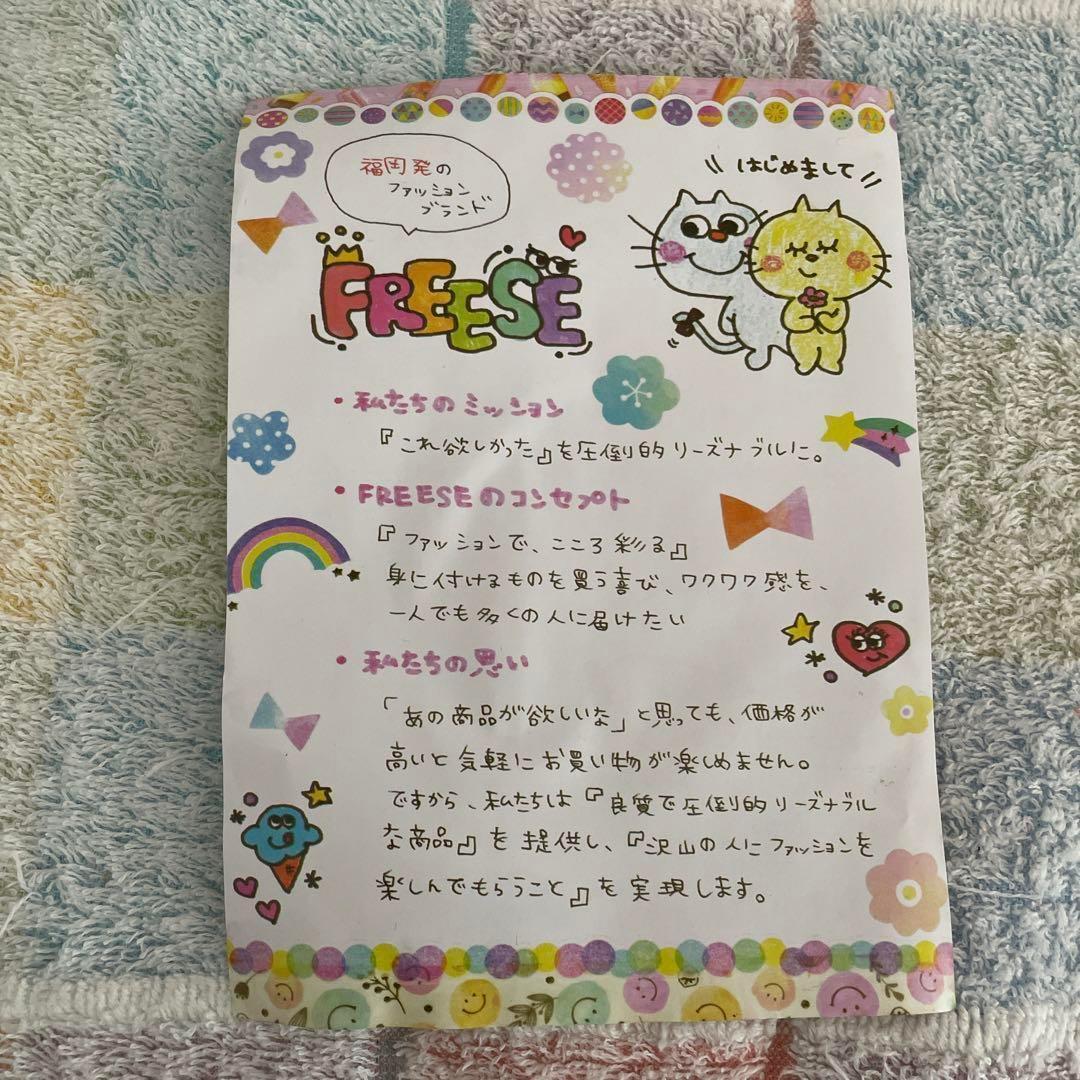 福岡発の
ファッション
ブランド
\\ はじめまして //
FREESE
・私たちのミッション
『これ欲しかった』を圧倒的リーズナブルに。
・FREESEのコンセプト
『ファッションで、こころ彩る』
身に付けるものを買う喜び、ワクワク感を、
一人でも多くの人に届けたい
・私たちの思い
「あの商品が欲しいな」と思っても、価格が
高いと気軽にお買い物が楽しめません。
ですから、私たちは『良質で圧倒的リーズナブル
な商品』を提供し、『沢山の人にファッションを
楽しんでもらうこと』を実現します。